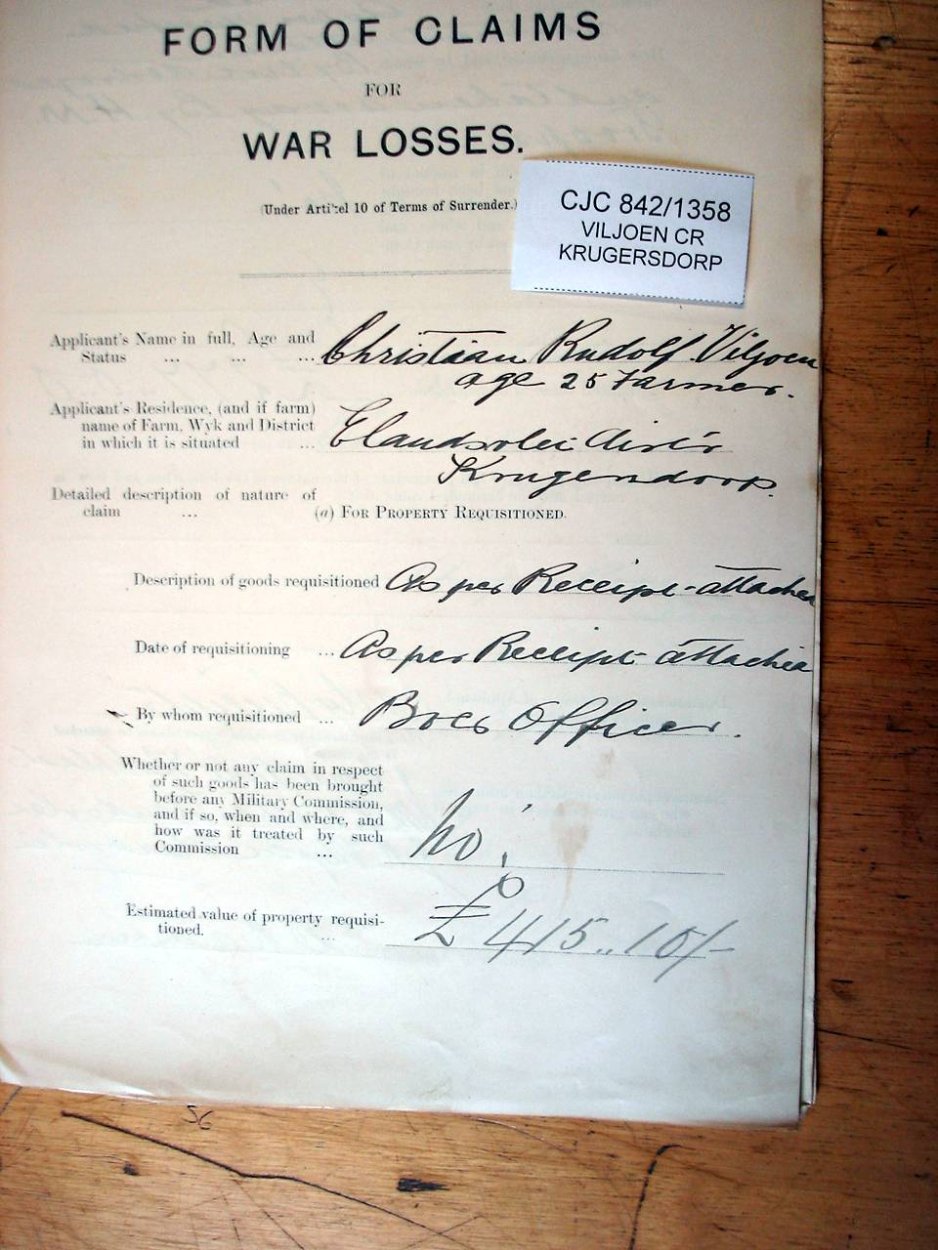 FORM OF CLAIMS
FOR
WAR LOSSES.
(Under Artikel 10 of Terms of Surrender.)
CJC 842/1358
VILJOEN CR
KRUGERSDORP
Applicant's Name in full, Age and
Status ... ... ... Christiaan Rudolf Viljoen
age 25 Farmer.
Applicant's Residence, (and if farm)
name of Farm, Wyk and District
in which it is situated ... Elandsvlei
Krugersdorp.
Detailed description of nature of
claim ... (a) FOR PROPERTY REQUISITIONED.
Description of goods requisitioned As per Receipt attached
Date of requisitioning ... As per Receipt attached
By whom requisitioned ... Boer Officer.
Whether or not any claim in respect
of such goods has been brought
before any Military Commission,
and if so, when and where, and
how was it treated by such
Commission ... No.
Estimated value of property requisi-
tioned. ... £415..10/-
56